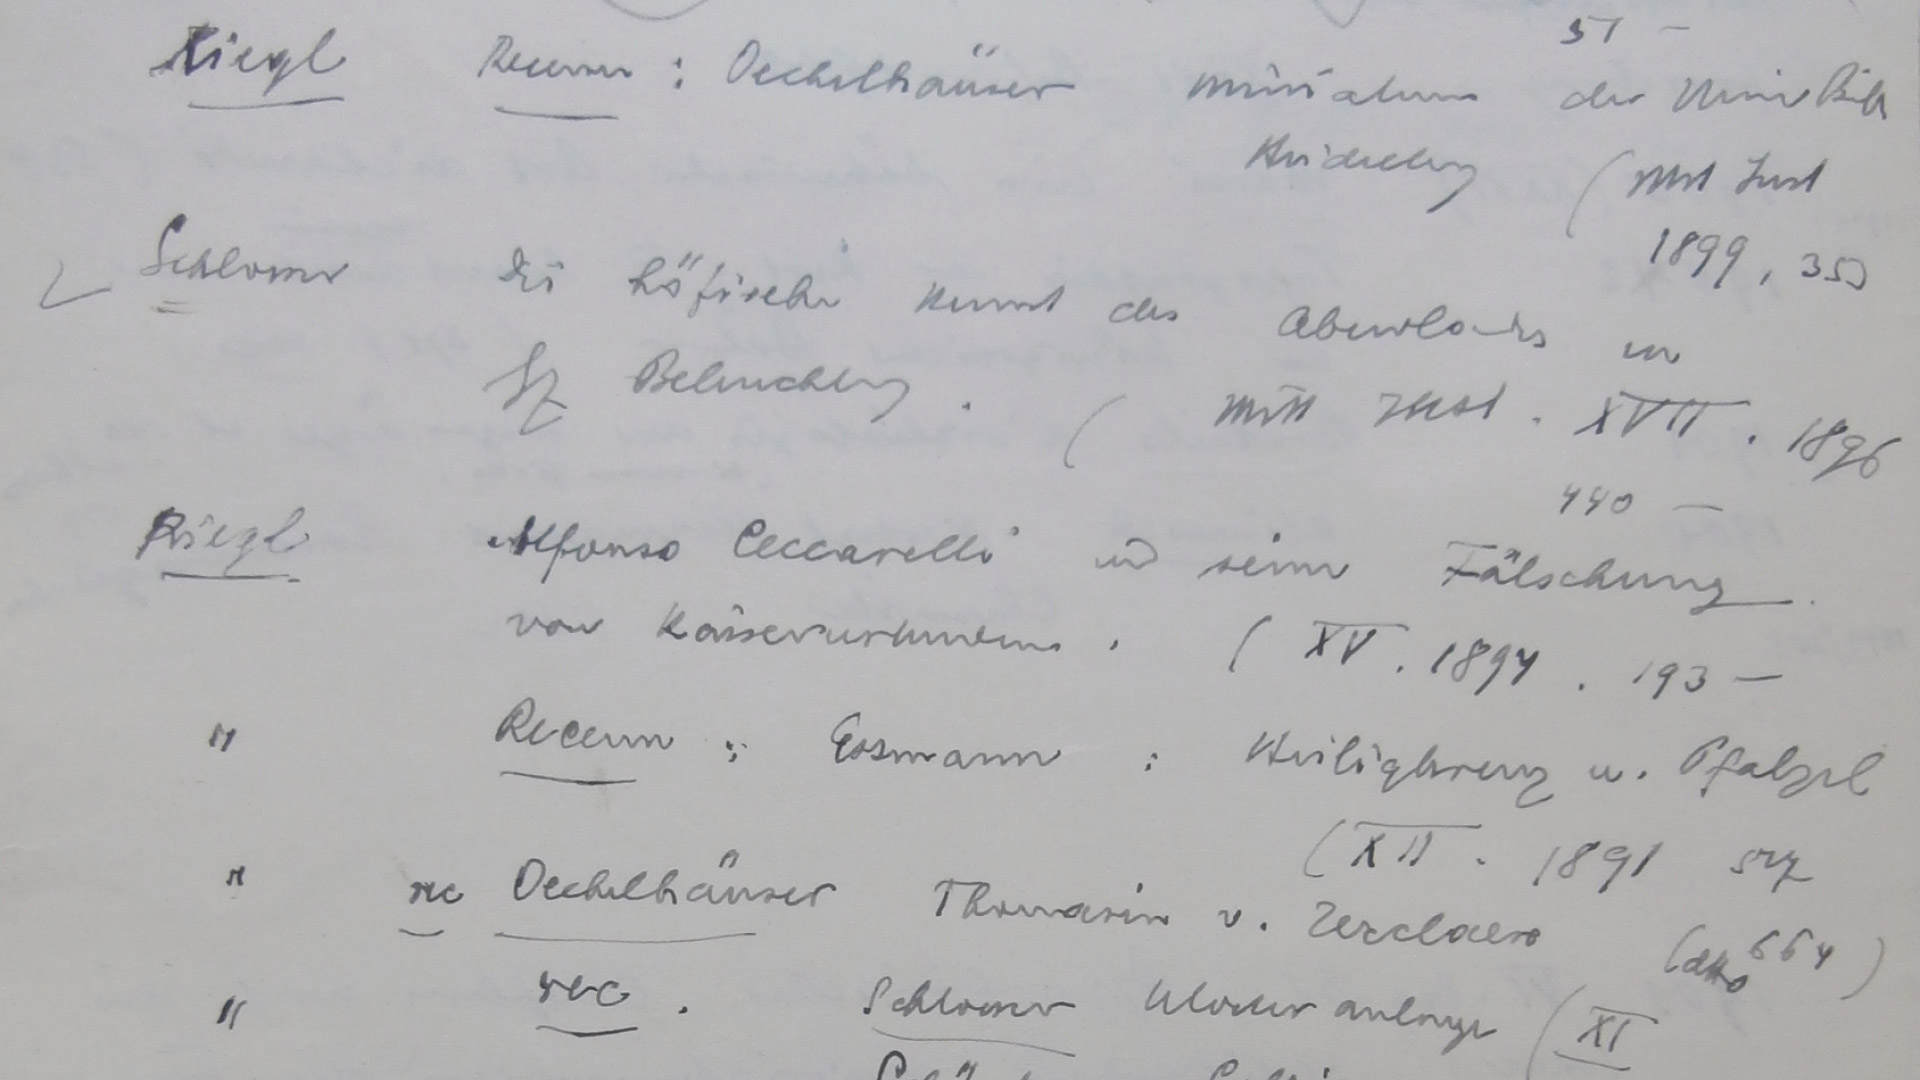 51 —
Riegl Recension : Oechelhäuser Miniaturen der Univ Bibl
Heidelberg (Mitt Inst
1899, 35
Schlosser Die höfische Kunst des Abendlandes in
bz Beleuchtung. ( Mitt Inst. XVII. 1896
440 —
Riegl Alfonso Ceccarelli und seine Fälschung
von Kaiserurkunden. ( XV. 1894. 193 —
" Recension : Essmann : Heiligkreuz u. Pfalzel
(XII. 1891
" rec Oechelhäuser Thomasin v. Zerclaere (dtto 664)
" rec. Schlosser Klosteranlage (XI